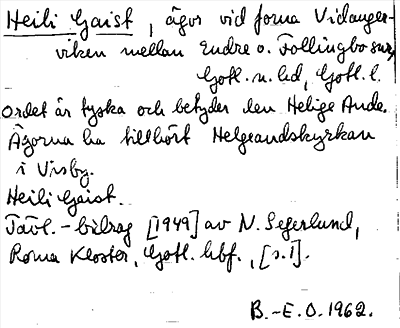 Heili Gaist, ägor vid forna Vidanger-
viken mellan Endre o. Follingbo snr,
Gotl. n. hd, Gotl. l.
Ordet är tyska och betyder den Helige Ande.
Ägorna ha tillhört Helgeandskyrkan
i Visby.
Heili Gaist.
Tävl.-bidrag [1949] av N. Segerlund,
Roma Kloster, Gotl. hbf., [s. 1].
B.-E. O. 1962.